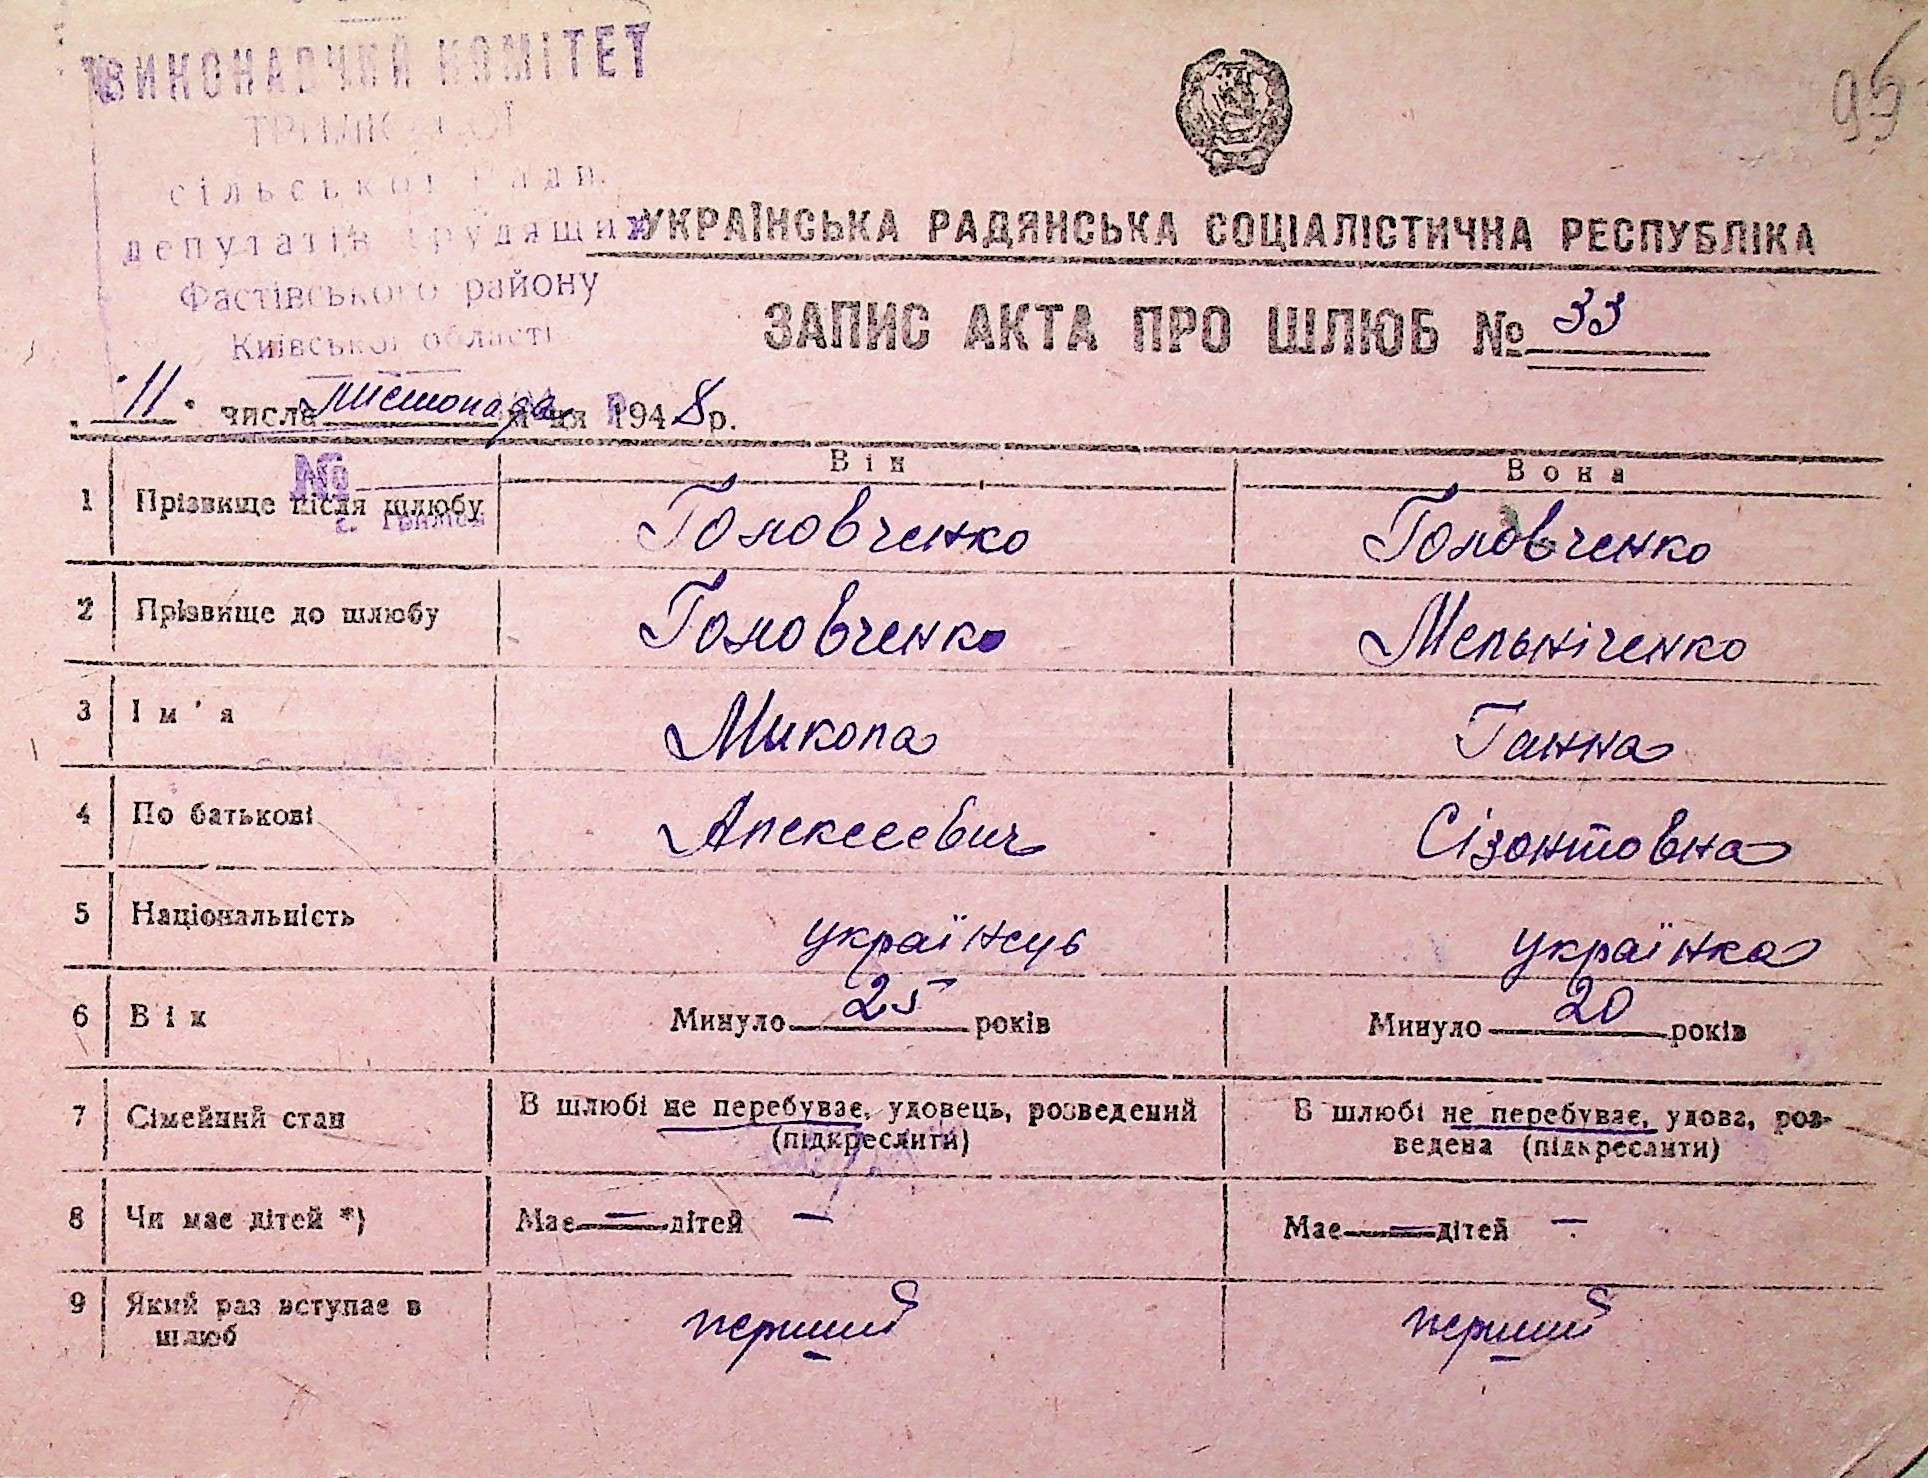 ВИКОНАВЧИЙ КОМІТЕТ
сільської Ради
депутатів трудящих
Фастівського району
Київської області
95
УКРАЇНСЬКА РАДЯНСЬКА СОЦІАЛІСТИЧНА РЕСПУБЛІКА
ЗАПИС АКТА ПРО ШЛЮБ № 33
"11" числа листопада м-ця 1948 р.
№
Він Вона
1 Прізвище після шлюбу Головченко Головченко
2 Прізвище до шлюбу Головченко Мельніченко
3 Ім'я Микола Ганна
4 По батькові Алексеевич Сізонтовна
5 Національність українець українка
6 Вік Минуло 25 років Минуло 20 років
7 Сімейний стан В шлюбі не перебуває, удовець, розведений В шлюбі не перебуває, удова, роз-
(підкреслити) ведена (підкреслити)
8 Чи має дітей *) Має — дітей — Має — дітей —
9 Який раз вступає в перший перший
шлюб